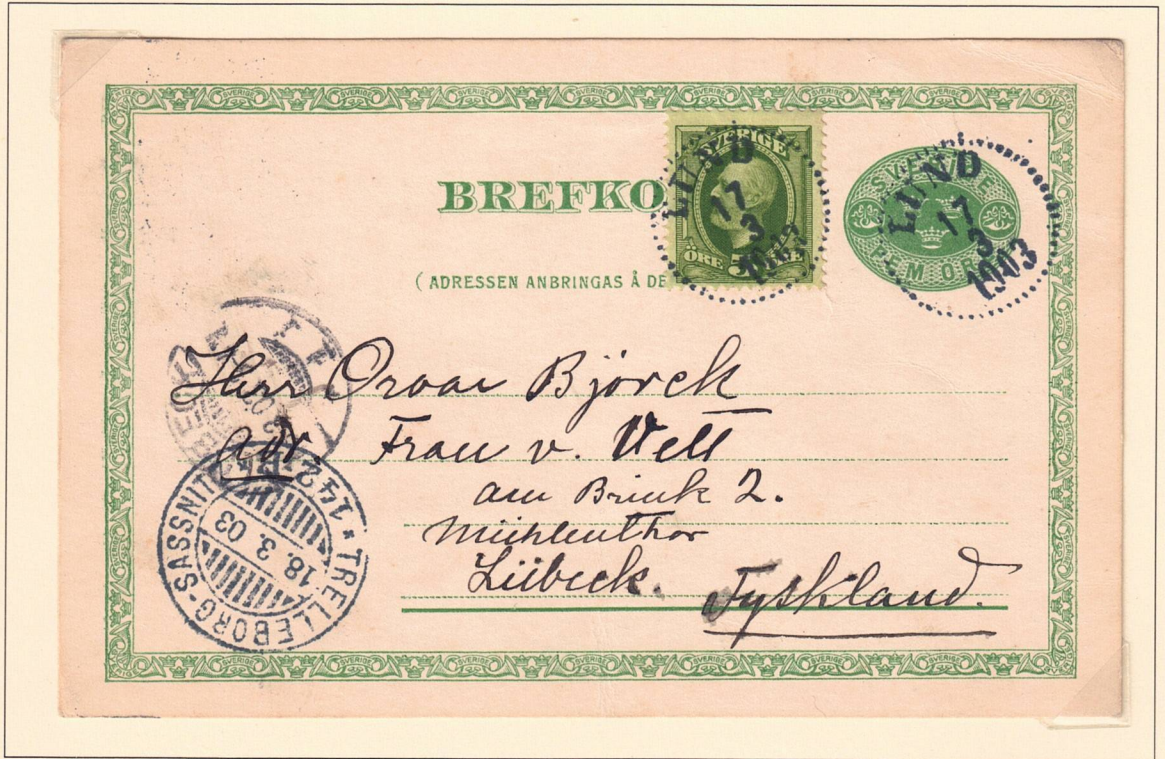 BREFKO
( ADRESSEN ANBRINGAS Å DE
SVERIGE
5
ÖRE
LUND
17
3
1903
SVERIGE
FEM ÖRE
LUND
17
3
1903
Herr Orvar Björck
adr. Frau v. Velt
am Brink 2.
Mühlenthor
Lübeck.
Tyskland.
TRELLEBORG-SASSNITZ
142
18.3.03